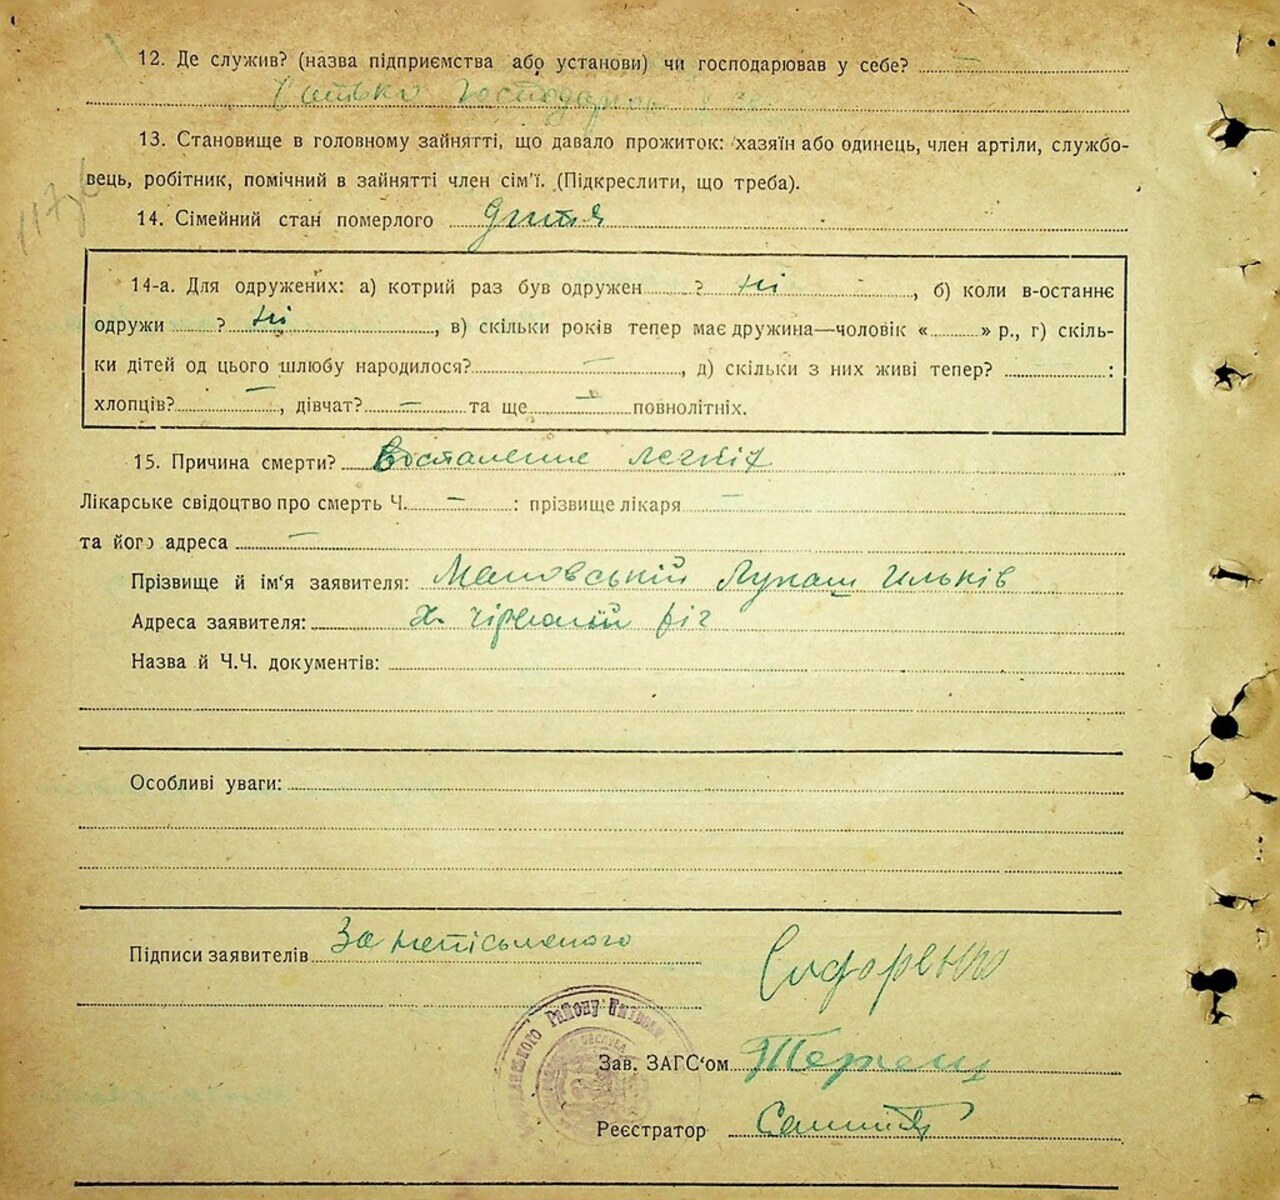 12. Де служив? (назва підприємства або установи) чи господарював у себе? –
Батько господарював у себе
13. Становище в головному зайнятті, що давало прожиток: хазяїн або одинець, член артіли, службо-
вець, робітник, помічний в зайнятті член сім'ї. (Підкреслити, що треба).
117
14. Сімейний стан померлого дитя
14-а. Для одружених: а) котрий раз був одружен ? ні , б) коли в-останнє
одружи ? ні , в) скільки років тепер має дружина—чоловік « » р., г) скіль-
ки дітей од цього шлюбу народилося? – , д) скільки з них живі тепер? :
хлопців? – , дівчат? – та ще – повнолітніх.
15. Причина смерти? Воспаление легкіх
Лікарське свідоцтво про смерть Ч. – : прізвище лікаря –
та його адреса –
Прізвище й ім'я заявителя: Маловській Лукаш Ильків
Адреса заявителя: х. Чірвоній ріг
Назва й Ч.Ч. документів:
Особливі уваги:
Підписи заявителів За непісьменого Сидоренко
Району
Зав. ЗАГС'ом
Реєстратор